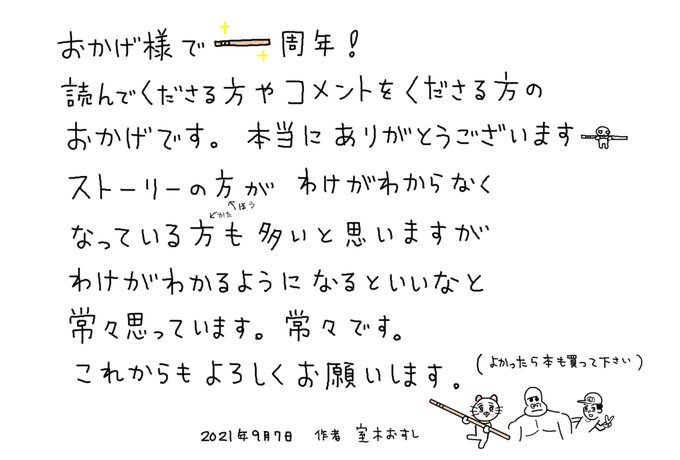 おかげ様で 周年!
読んでくださる方やコメントをくださる方の
おかげです。本当にありがとうございます
ストーリーの方が わけがわからなく
ほう
かた
なっている方も多いと思いますが
わけがわかるようになるといいなと
常々思っています。常々です。
これからもよろしくお願いします。
(よかったら本も買って下さい)
2021年9月7日 作者 室木おすし